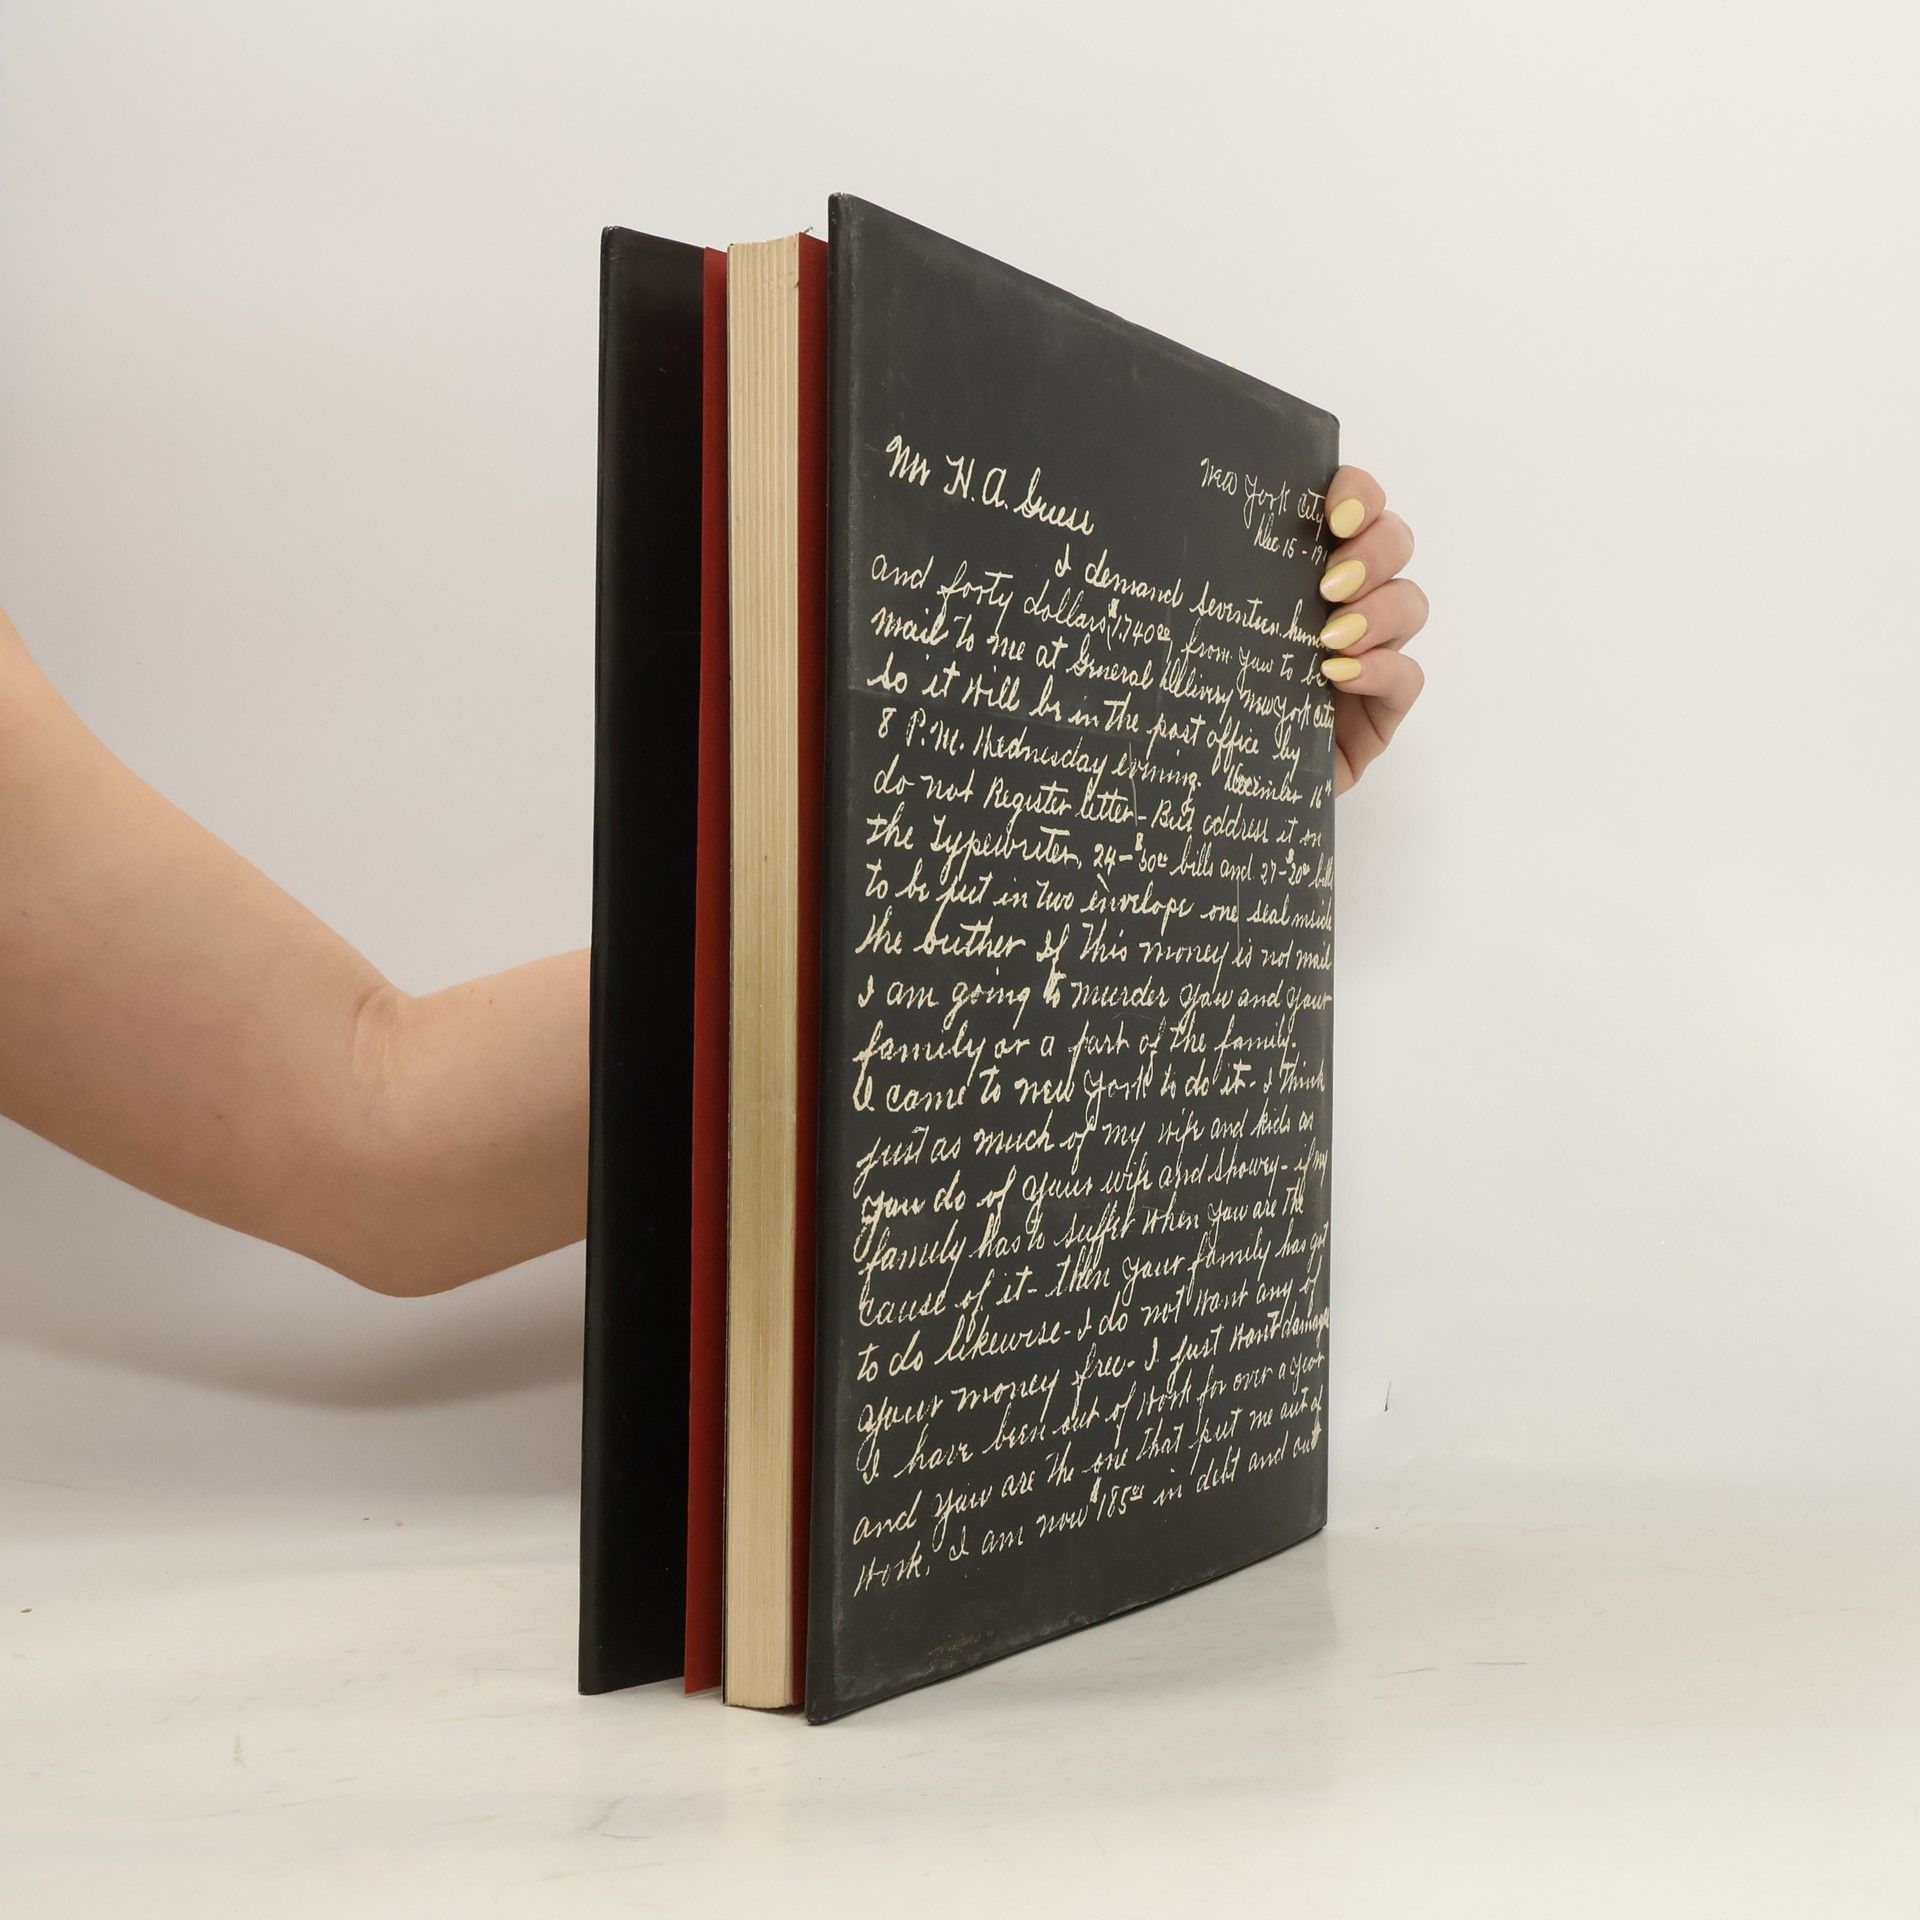 New York City
Dec 15 - 19
Mr H. A. Guess
I demand seventeen
and forty dollars $1.740⁰⁰ from yaw to be
mail to me at General Dellivery new York City
so it will be in the post office by
8 P.M. Wednesday evning. December 16ᵗʰ
do not Register letter - But address it on
the Typewriter. 24 - $50⁰⁰ bills and 27 - $20⁰⁰ bills
to be put in two envelope one seal inside
the outher If this money is not mail
I am going to murder yaw and yaur
family or a part of the family.
I came to new York to do it - I think
just as much of my wife and kids as
yau do of yaur wife and showey - if my
family has to suffer when yaw are the
cause of it - then yaur family has got
to do likewise - I do not want any of
yaur money free - I just want damages
I have been out of work for over a year
and yaw are the one that put me aut of
work. I am now $185⁰⁰ in debt and aut